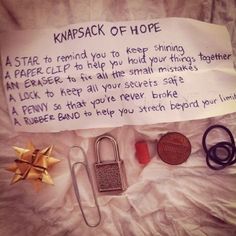 KNAPSACK OF HOPE
A STAR to remind you to keep shining
A PAPER CLIP to help you hold your things together
AN ERASER to fix all the small mistakes
A LOCK to keep all your secrets safe
A PENNY so that you're never broke
A RUBBER BAND to help you strech beyond your limit